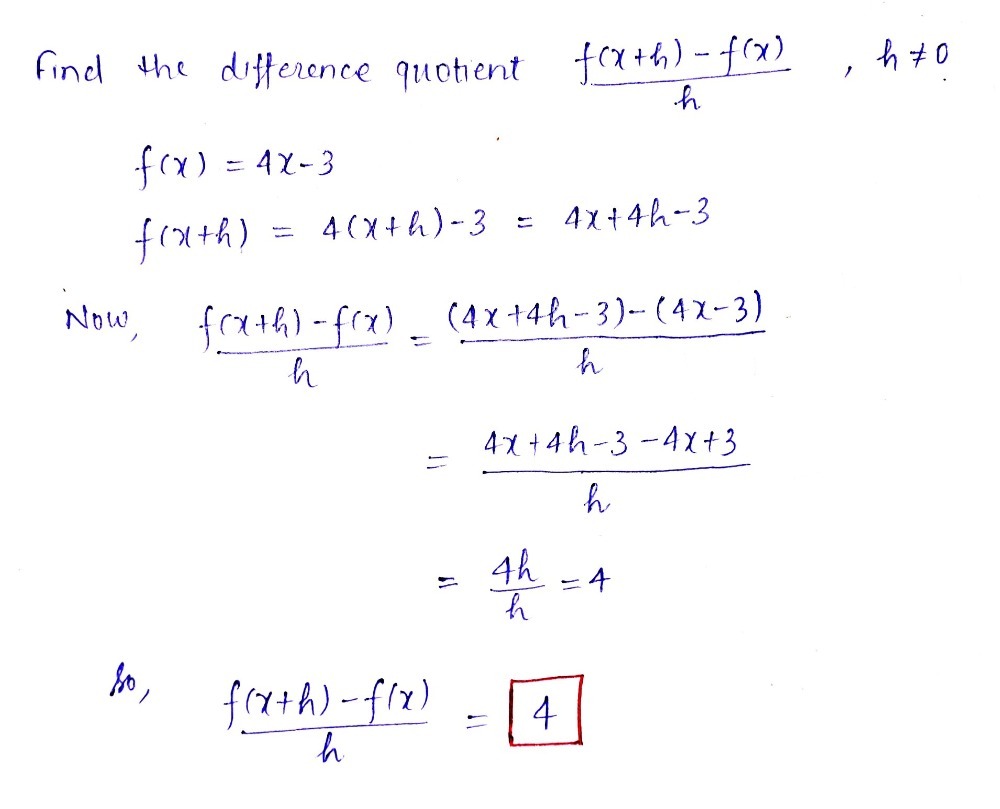 Find the difference quotient f(x+h)-f(x)/h , h≠0
f(x) = 4x-3
f(x+h) = 4(x+h)-3 = 4x+4h-3
Now, f(x+h)-f(x)/h = (4x+4h-3)-(4x-3)/h
= 4x+4h-3-4x+3/h
= 4h/h = 4
So, f(x+h)-f(x)/h = 4